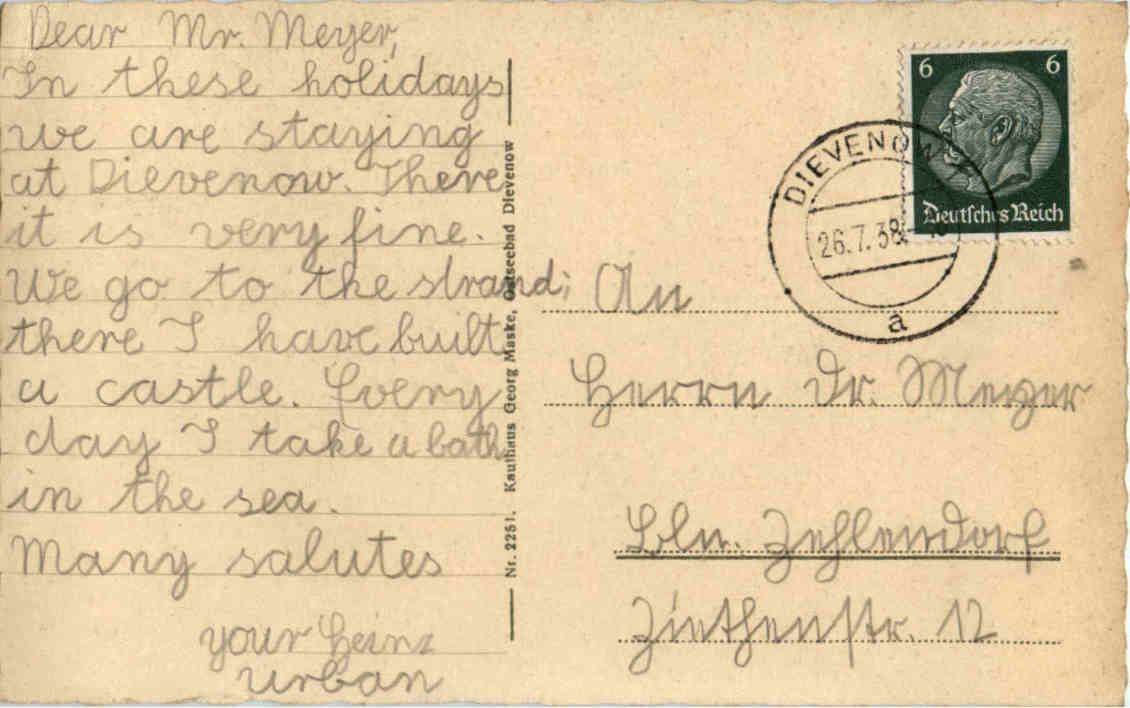 Dear Mr. Meyer,
In these holidays
we are staying
at Dievenow. There
it is very fine.
We go to the strand;
there I have built
a castle. Every
day I take a bath
in the sea.
Many salutes
your Heinz
Urban
Nr. 2251. Kaufhaus Georg Maske, Ostseebad Dievenow
6 6
Deutsches Reich
DIEVENOW
26.7.38
a
An
Herrn Dr. Meyer
Bln. Zehlendorf
Ziethenstr. 12